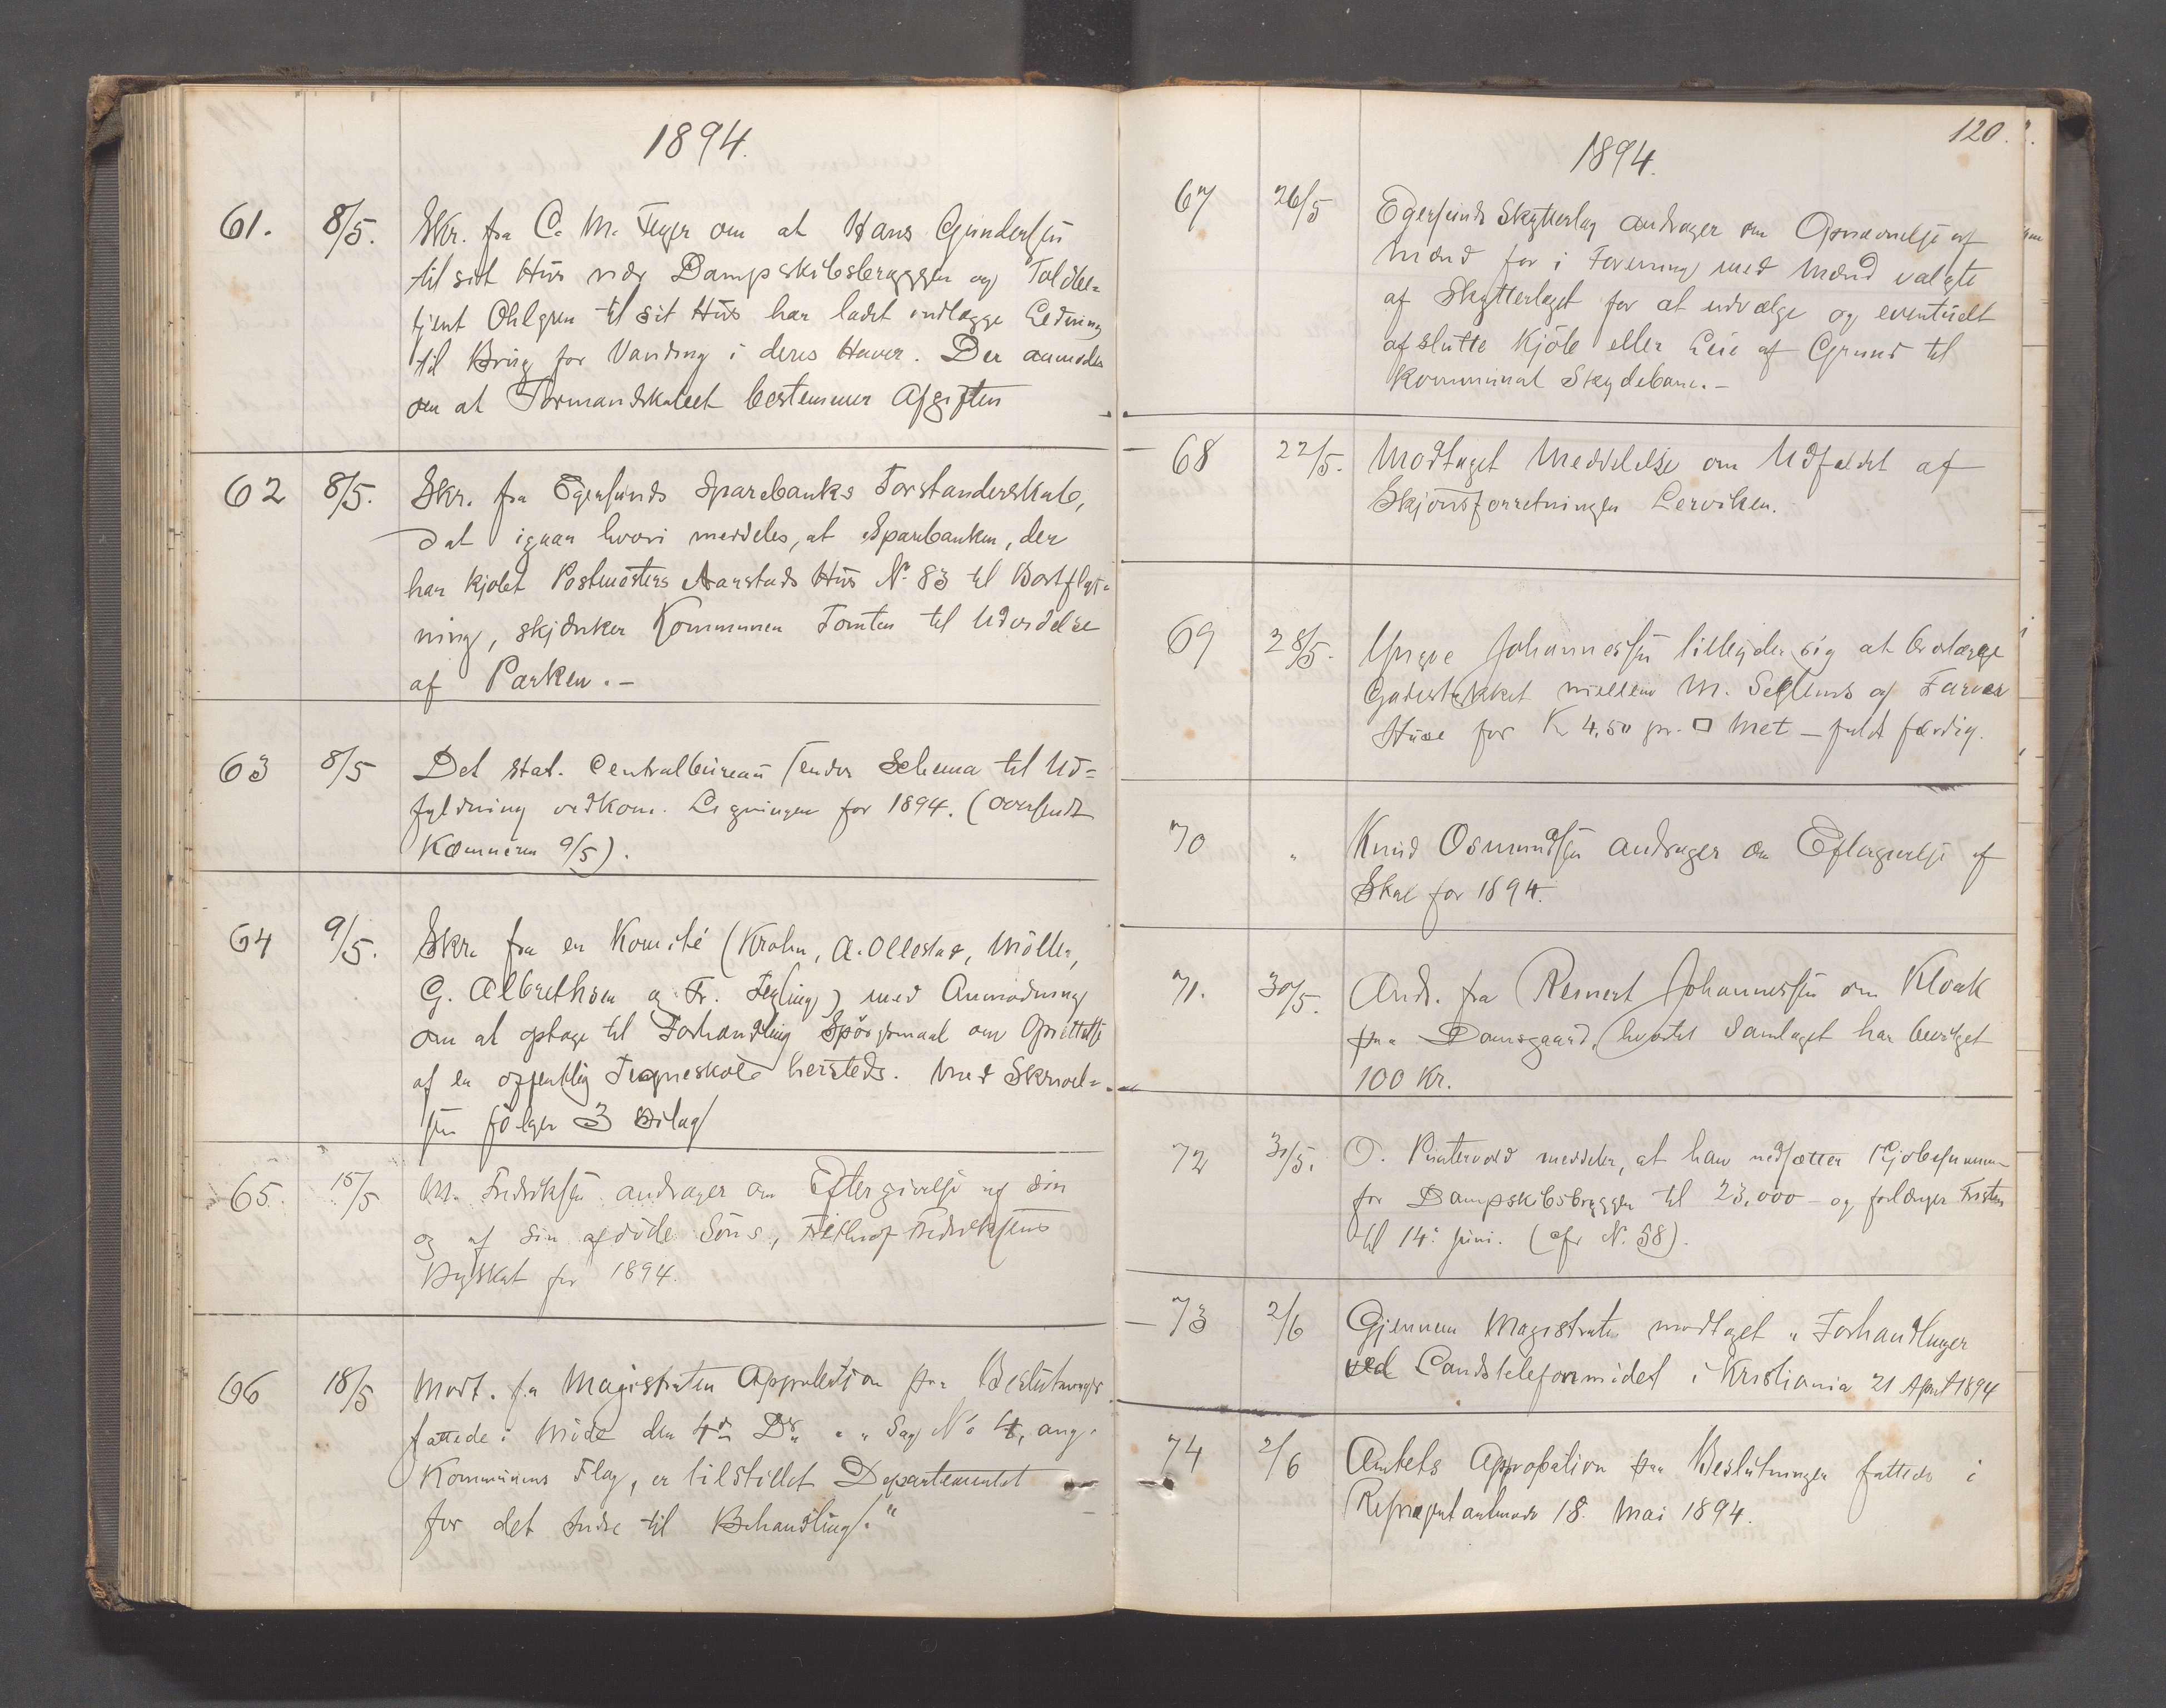 1894.
61. 8/5. Skr. fra C. M. Feyer om at Hans Gundersen
til sit Hus ved Dampskibsbryggen og Toldbe=
tjent Ohlgren til sit Hus har ladet indlægge Ledning
til Brug for Vanding i deres Haver. Der anmodes
om at Formandskabet bestemmer Afgiften
62 8/5. Skr. fra Egersunds Sparebanks Forstanderskab,
dat igaar hvori meddeles, at Sparebanken, der
har kjøbt Postmesters Aarstads Hus No 83 til Bortflyt=
ning, skjænker Kommunen Tomten til Udvidelse
af Parken. -
63 8/5 Det stat. Centralbureau sender Schema til Ud=
fyldning vedkom. Ligningen for 1894. (oversendt
Kæmneren 9/5).
64 9/5. Skr. fra en Komité (Krohn, A. Ollestad, Møller,
G. Albrethsen og Fr. Feyling) med Anmodning
om at optage til Forhandling Spørgsmaal om Oprettelse
af en offentlig Tegneskole hersteds. Med Skrivel=
sen følger 3 Bilag
65. 15/5 M. Fredriksen andrager om Eftergivelse af sin
og af sin afdøde Søns, Fredriksens
Byskat for 1894.
66 18/5 Modt. fra Magistraten Approbation paa Beslutninger
fattede i Møde den 4de Ds. " " Sag No 4, ang.
Kommunens Flag, er tilstillet Departementet
for det Indre til Behandling."
120.
1894.
67 26/5 Egersunds Skytterlag andrager om Opnævnelse af
Mænd for i Forening med Mænd valgte
af Skytterlaget for at udvælge og eventuelt
afslutte Kjøb eller Leie af Grund til
Kommunal Skydebane. -
68 22/5. Modtaget Meddelelse om Udfaldet af
Skjønsforretningen Lerviken.
69 28/5. Yngve Johannessen tilbyder sig at brolægge
Gadestykket mellem M. Seglems og Farver
Huse for K 4,50 pr. □ Met - fuldt færdig.
70 " Knud Osmundsen andrager om Eftergivelse af
Skat for 1894.
71. 30/5. Andr. fra Reinert Johannessen om Kloak
paa Damsgaard, hvortil Samlaget har bevilget
100 Kr.
72 31/5. O. Puntervold meddeler, at han nedsætter Kjøbesummen
for Dampskibsbryggen til 23,000 - og forlænger Fristen
til 14. juni. (cfr No. 58).
73 2/6 Gjennem Magistraten modtaget "Forhandlinger
ved Landstelefonmødet i Kristiania 21 April 1894
74 2/6 Amtets Approbation paa Beslutninger fattede i
Repræsentantmøde 18. Mai 1894.